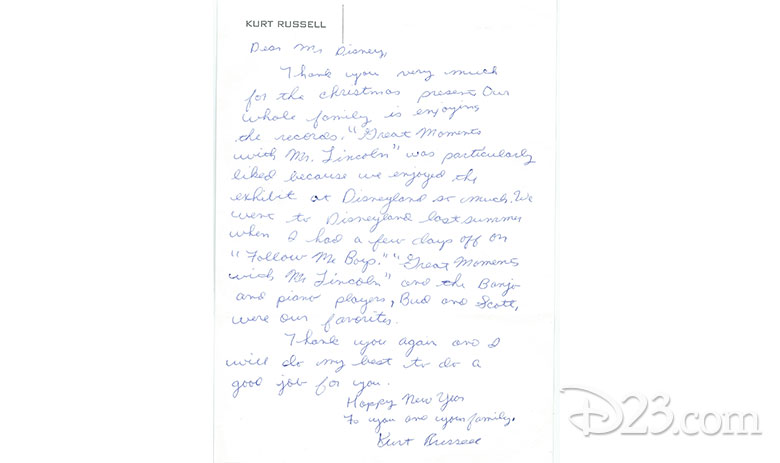 KURT RUSSELL
Dear Mr Disney,
Thank you very much
for the christmas present. Our
whole family is enjoying
the records. "Great Moments
with Mr. Lincoln" was particularly
liked because we enjoyed the
exhibit at Disneyland so much. We
went to Disneyland last summer
when I had a few days off on
"Follow Me Boys." "Great Moments
with Mr Lincoln" and the Banjo
and piano players, Bud and Scott,
were our favorites.
Thank you again and I
will do my best to do a
good job for you.
Happy New Year
To you and your family.
Kurt Russell
D23.com